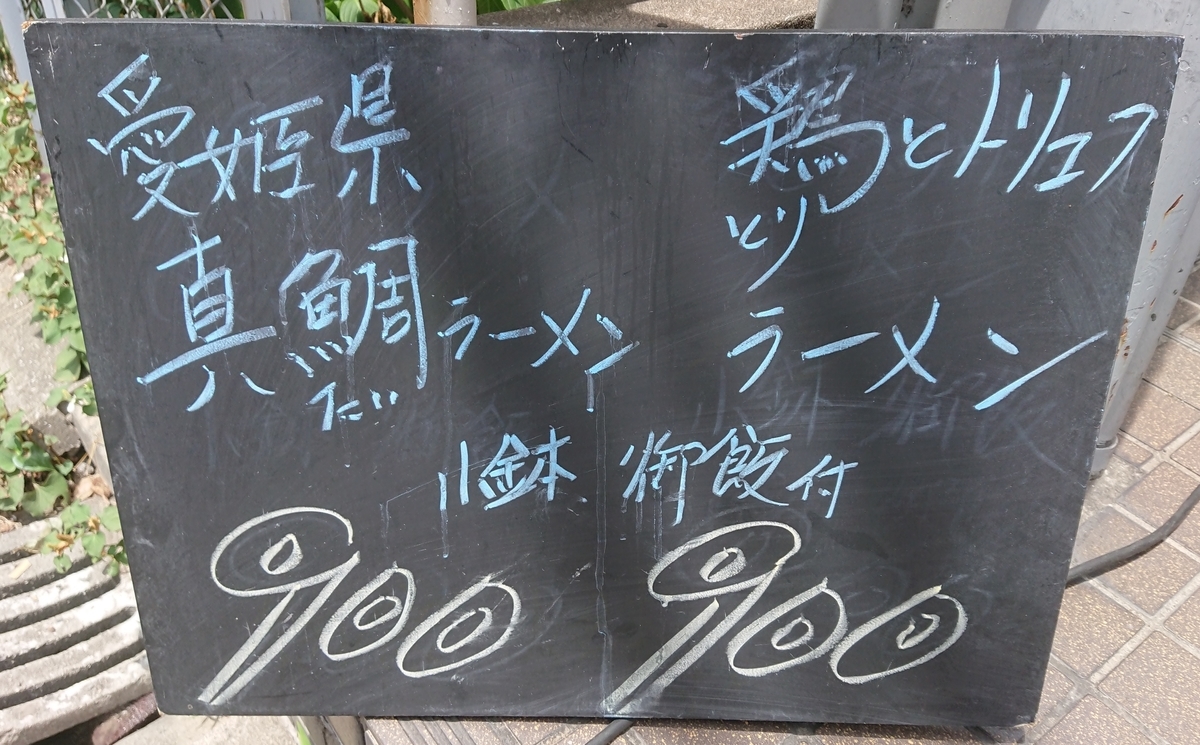 愛媛県
真鯛ラーメン
だい
鶏とトリュフ
とり
ラーメン
小鉢 御飯付
900
900